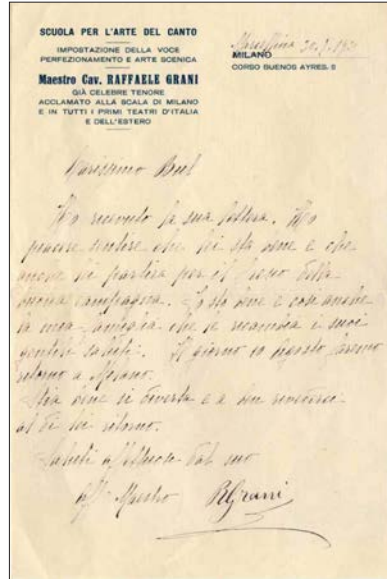 SCUOLA PER L'ARTE DEL CANTO
IMPOSTAZIONE DELLA VOCE
PERFEZIONAMENTO E ARTE SCENICA
Maestro Cav. RAFFAELE GRANI
GIÀ CELEBRE TENORE
ACCLAMATO ALLA SCALA DI MILANO
E IN TUTTI I PRIMI TEATRI D'ITALIA
E DELL'ESTERO
MILANO
CORSO BUENOS AYRES, 5
Carissimo
Ho ricevuto la sua lettera. Ho
piacere sentire che lei sta bene e che
anche lei partirà per il fresco della
buona campagna. Io sto bene e così anche
la mia famiglia che le ricambia i suoi
gentili saluti. Il giorno 10 Agosto faremo
ritorno a Milano.
Stia bene si diverta e a ben rivederci
al di lei ritorno.
Saluti affettuosi dal suo
Aff Maestro RGrani